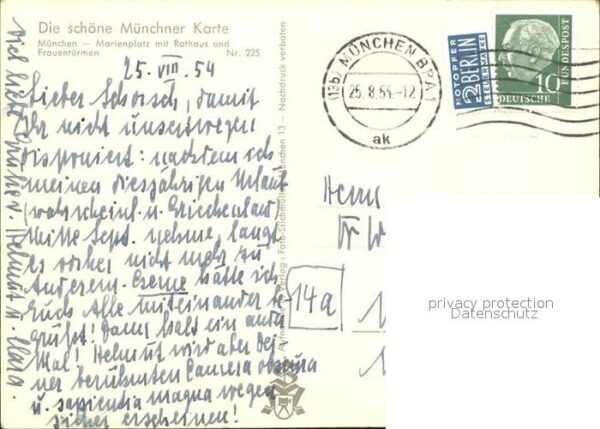 Die schöne Münchner Karte
München — Marienplatz mit Rathaus und
Frauentürmen Nr. 225
25. VIII. 54
Lieber Schorsch, damit
Ihr nicht unseretwegen
disponiert: nachdem ich
meinen diesjährigen Urlaub
(wahrscheinl. n. Griechenland)
Mitte Sept. nehme, langt
es vorher nicht mehr zu
Anderem. Gerne hätte ich
Euch Alle miteinander be-
grüßt! Dann halt ein ander
Mal! Helmut wird aber Dei-
ner berühmten Camera obscura
u. sapientia magna wegen
sicher erscheinen!
Viel liebe Grüße v. Helmut u.
Nachdruck verboten
München 13
Verlag:
(13b) MÜNCHEN BPA 1
25.8.54.-12
ak
NOTOPFER
2 BERLIN
STEUERMARKE
DEUTSCHE
BUNDESPOST
10
Herrn
Dr
14a
privacy protection
Datenschutz